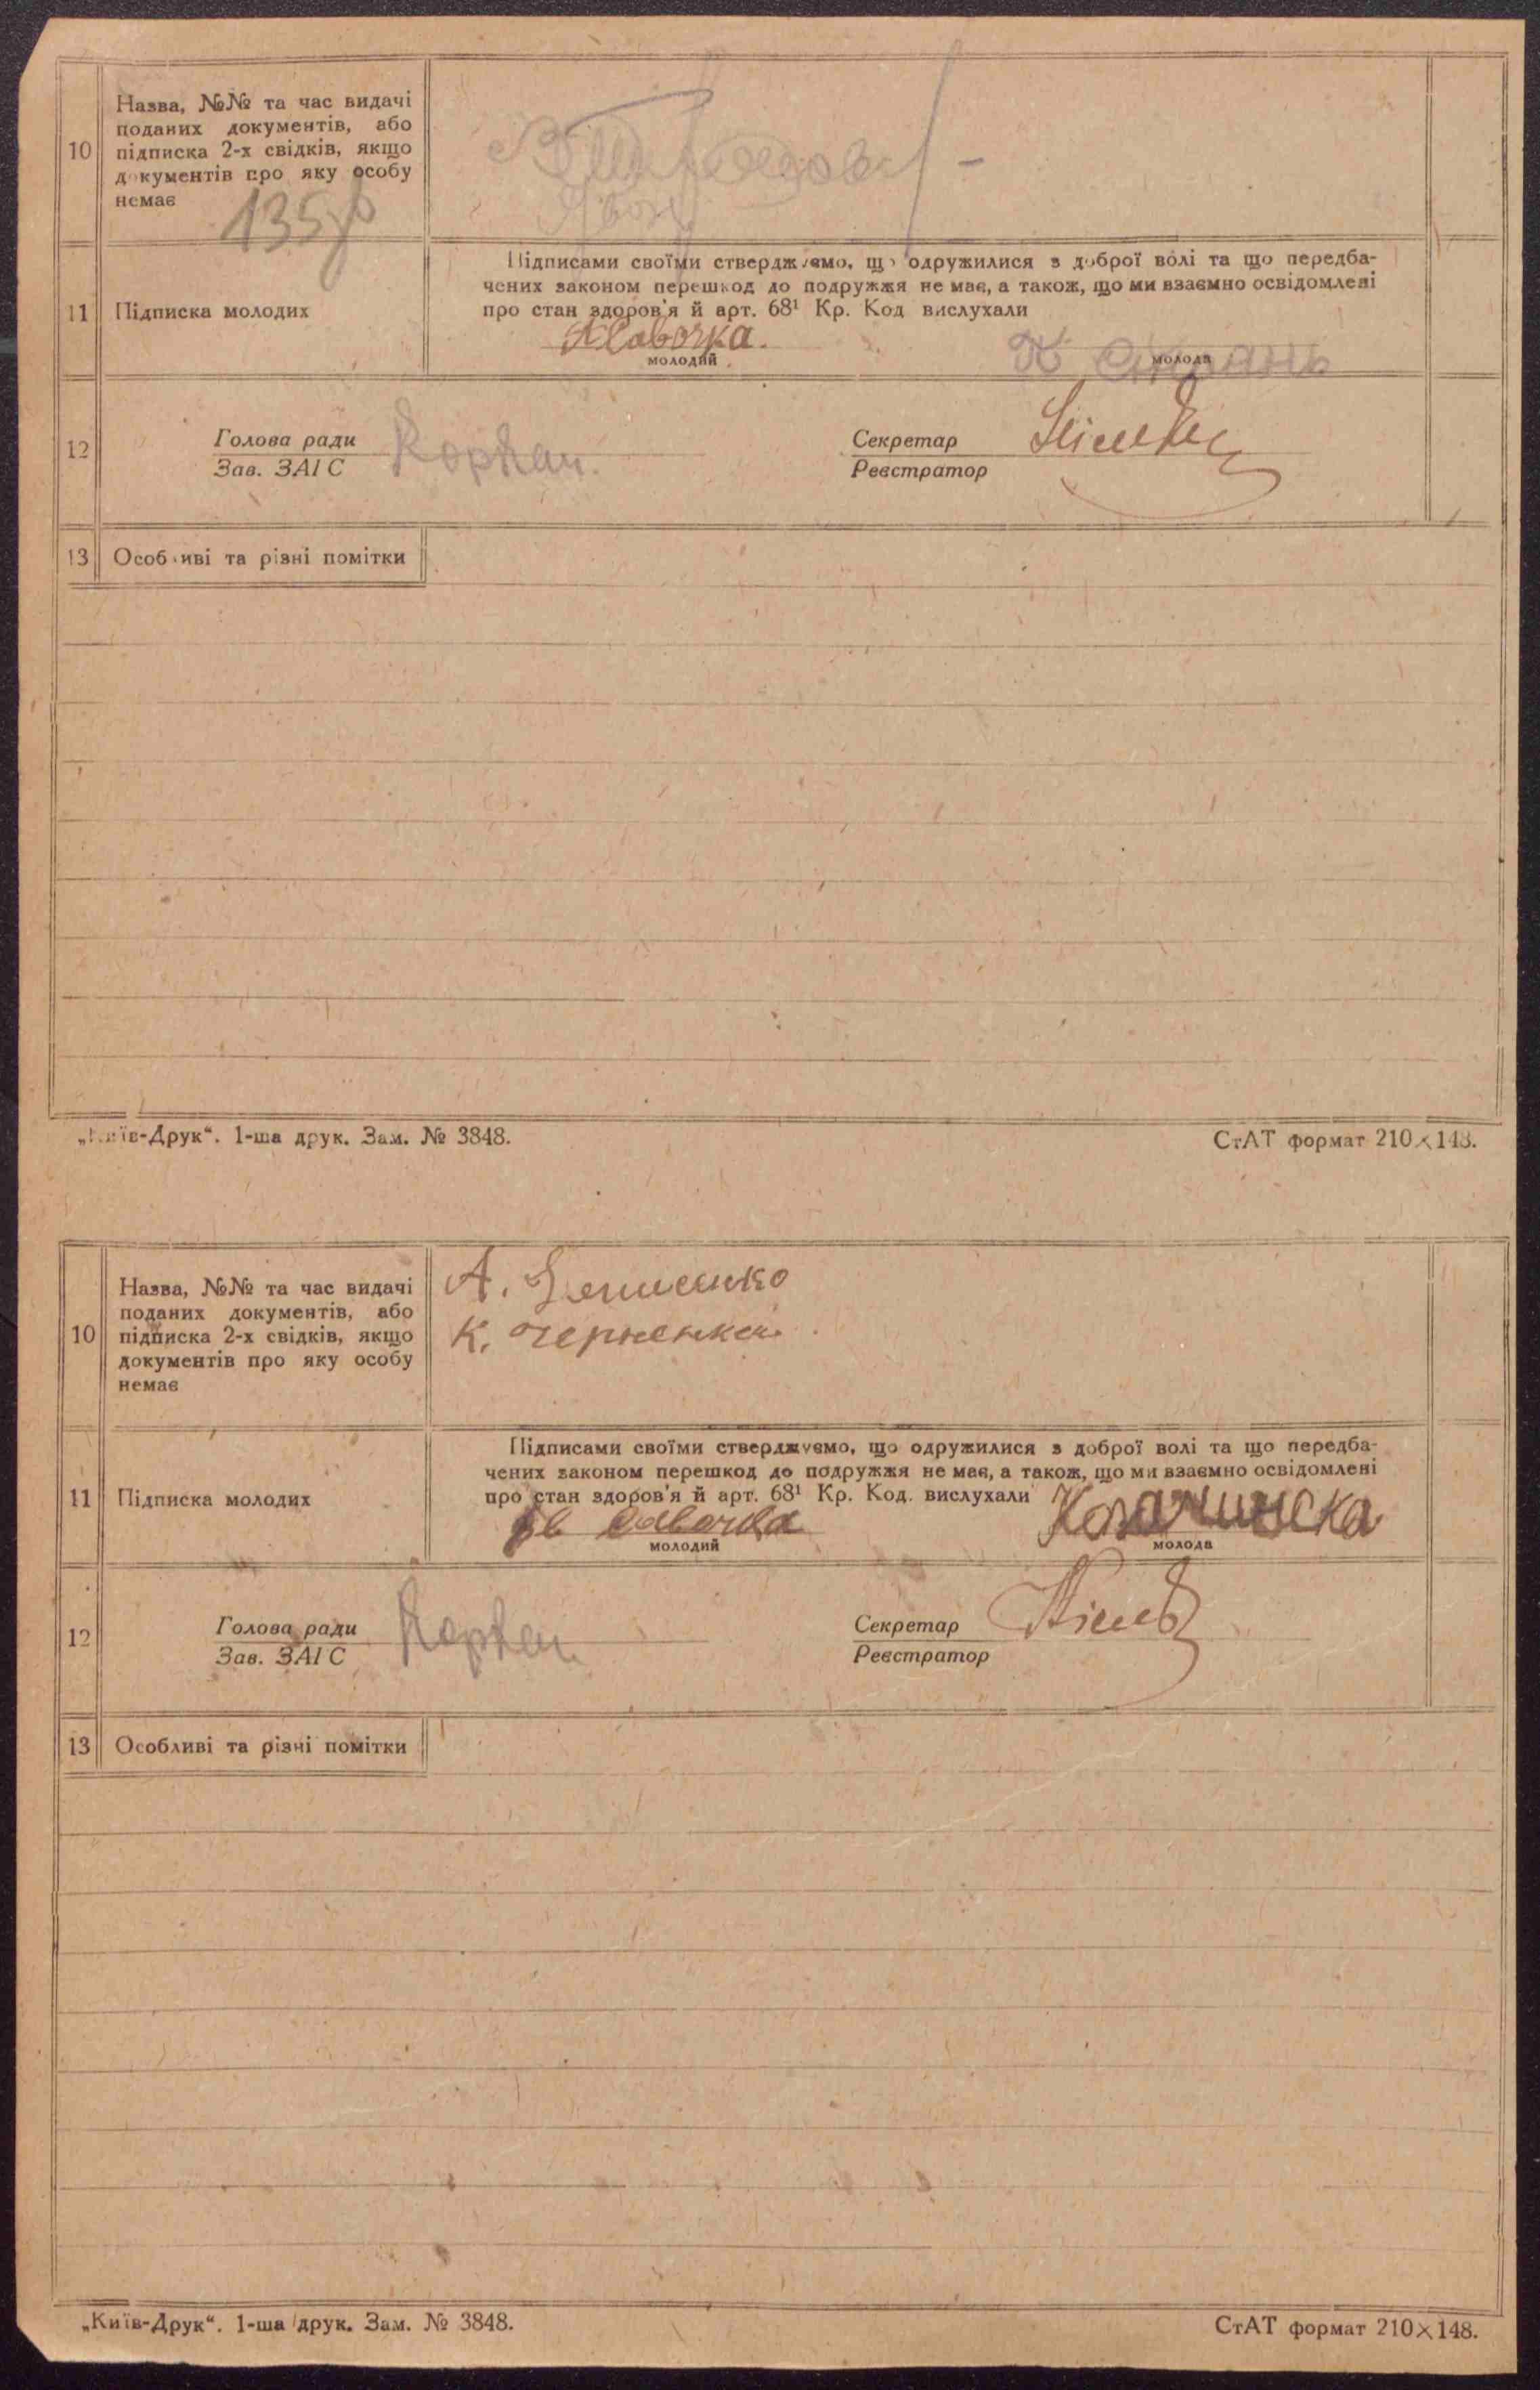 10 Назва, №№ та час видачі
поданих документів, або
підписка 2-х свідків, якщо
документів про яку особу
немає
135
11 Підписка молодих
Підписами своїми стверджуємо, що одружилися з доброї волі та що передба-
чених законом перешкод до подружжя не має, а також, що ми взаємно освідомлені
про стан здоров'я й арт. 68¹ Кр. Код вислухали
молодий молода
12 Голова ради Секретар
Зав. ЗАГС Реєстратор
13 Особливі та різні помітки
„Київ-Друк“. 1-ша друк. Зам. № 3848. СтАТ формат 210×148.
10 Назва, №№ та час видачі
поданих документів, або
підписка 2-х свідків, якщо
документів про яку особу
немає
А.
К. Черненко
11 Підписка молодих
Підписами своїми стверджуємо, що одружилися з доброї волі та що передба-
чених законом перешкод до подружжя не має, а також, що ми взаємно освідомлені
про стан здоров'я й арт. 68¹ Кр. Код. вислухали
Козачинска
молодий молода
12 Голова ради Секретар
Зав. ЗАГС Реєстратор
13 Особливі та різні помітки
„Київ-Друк“. 1-ша друк. Зам. № 3848. СтАТ формат 210×148.